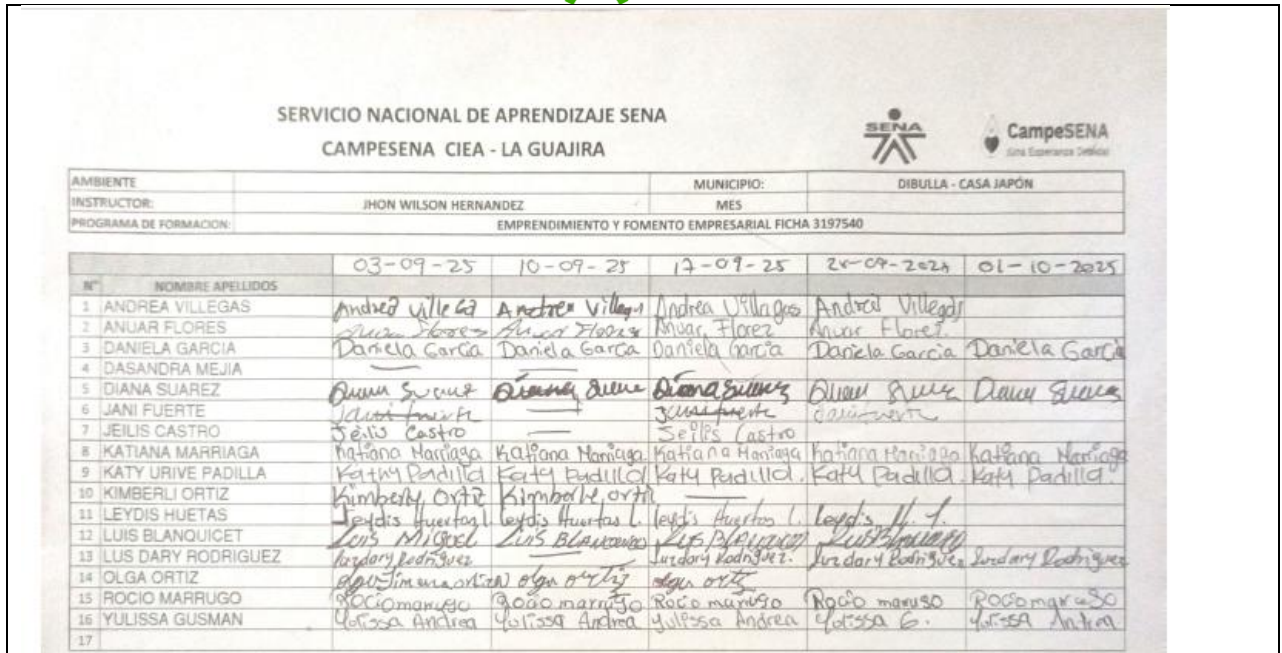 SERVICIO NACIONAL DE APRENDIZAJE SENA
CAMPESENA CIEA - LA GUAJIRA
SENA
CampeSENA
AMBIENTE MUNICIPIO: DIBULLA - CASA JAPÓN
INSTRUCTOR: JHON WILSON HERNANDEZ MES
PROGRAMA DE FORMACION: EMPRENDIMIENTO Y FOMENTO EMPRESARIAL FICHA 3197540
03-09-25 10-09-25 17-09-25 01-10-2025
N° NOMBRE APELLIDOS
1 ANDREA VILLEGAS Andrea Villegas Andrea Villegas
2 ANUAR FLORES Flores Anuar Florez Anuar Florez.
3 DANIELA GARCIA Daniela Garcia Daniela Garcia Daniela Garcia Daniela Garcia Daniela Garcia
4 DASANDRA MEJIA
5 DIANA SUAREZ Diana Suarez
6 JANI FUERTE
7 JEILIS CASTRO Jeilis Castro Jeilis Castro
8 KATIANA MARRIAGA Katiana Marriaga Katiana Marriaga Katiana Marriaga Katiana Marriaga Katiana Marriaga
9 KATY URIVE PADILLA Kathy Padilla Katy Padilla Katy Padilla. Katy Padilla. Katy Padilla.
10 KIMBERLI ORTIZ Kimberly Ortiz
11 LEYDIS HUETAS Leydis Huertas l. leydis Huertas l. leydis Huertas l. Leydis H. l.
12 LUIS BLANQUICET Luis Miguel Luis
13 LUS DARY RODRIGUEZ luzdary Rodriguez luzdary Rodriguez. luzdary Rodriguez luzdary Rodriguez
14 OLGA ORTIZ olga ortiz olga ortiz
15 ROCIO MARRUGO Rocio marrugo Rocio marrugo
16 YULISSA GUSMAN Yulissa Andrea Yulissa Andrea Yulissa Andrea Yulissa G. Yulissa Andrea
17